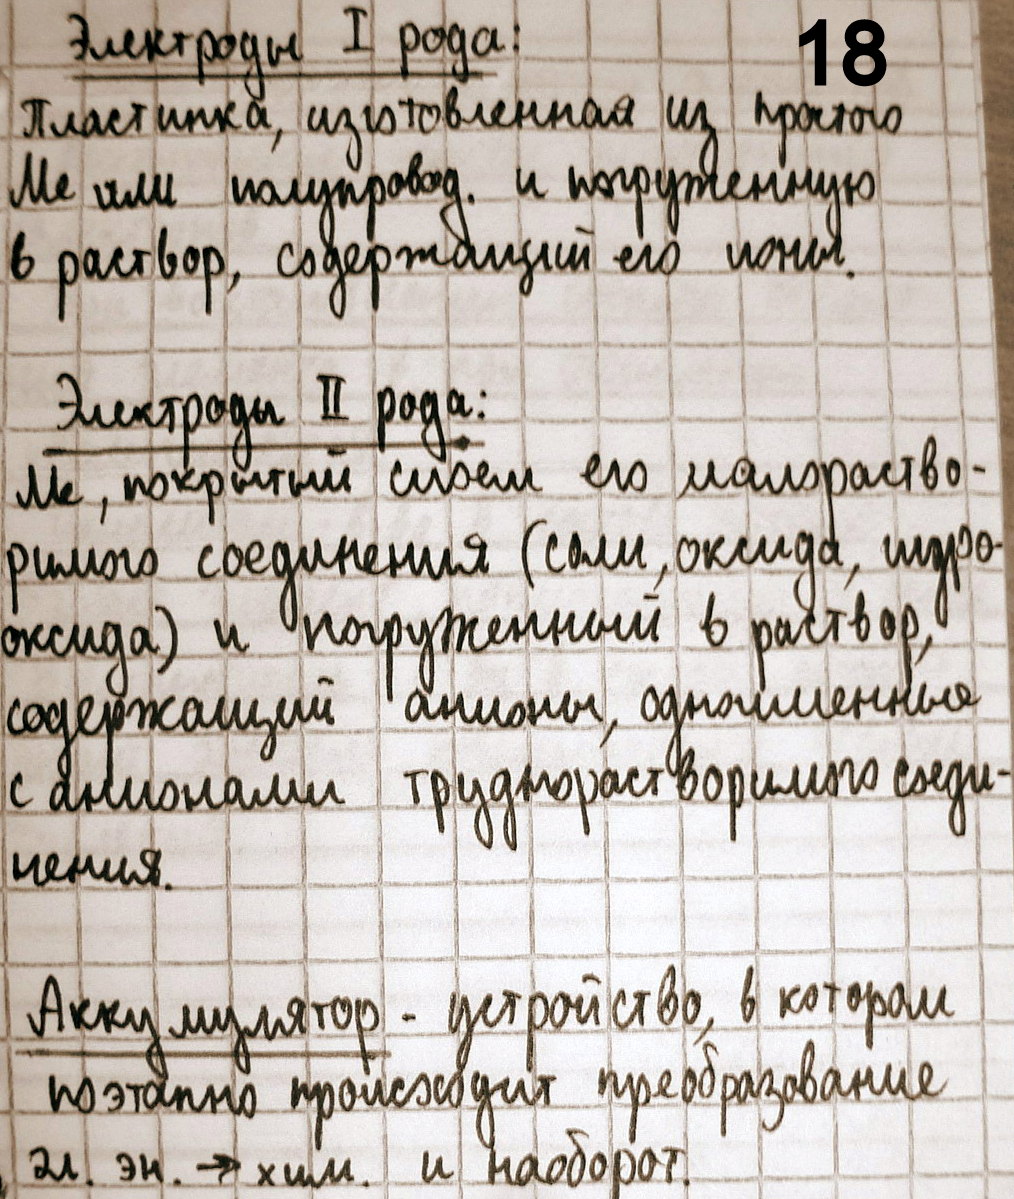 18
Электроды I рода:
Пластинка, изготовленная из простого
Ме или полупровод. и погруженную
в раствор, содержащий его ионы.
Электроды II рода:
Ме, покрытый слоем его малораство-
римого соединения (соли, оксида, гидро-
оксида) и погруженный в раствор,
содержащий анионы, одноименные
с анионами труднорастворимого соеди-
нения.
Аккумулятор - устройство, в котором
поэтапно происходит преобразование
эл. эн. → хим. и наоборот.